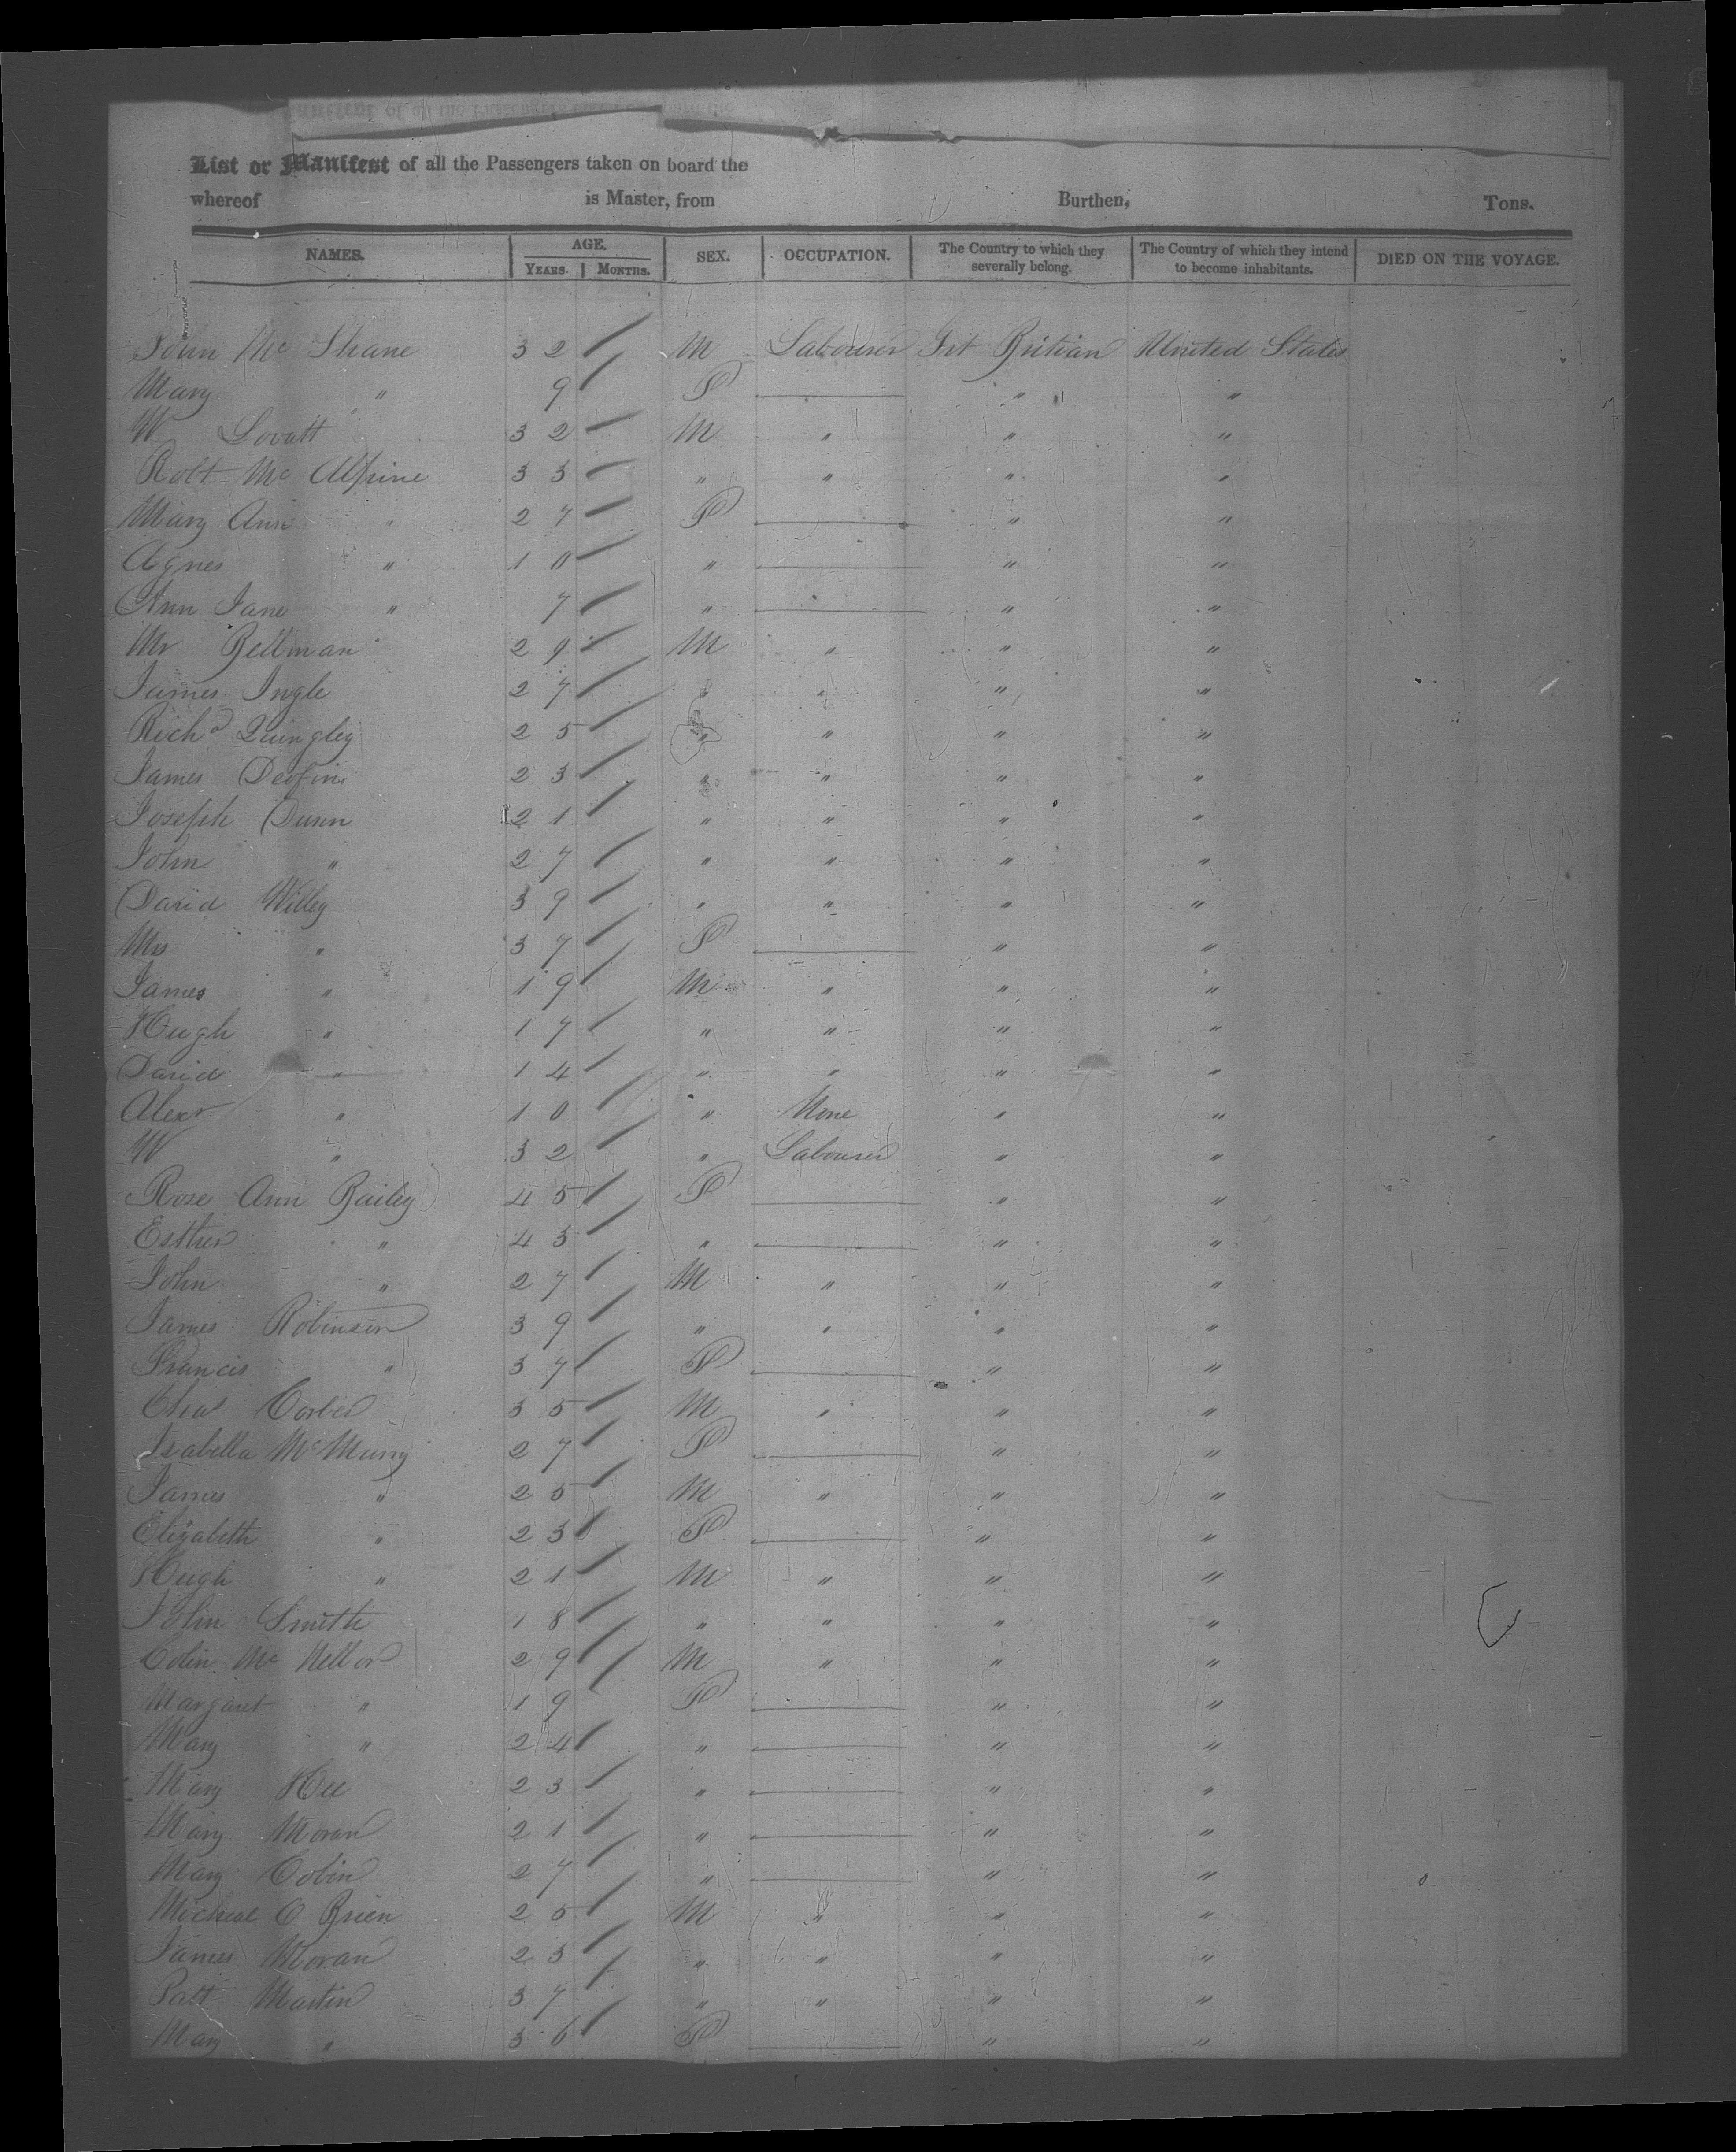 List or Manifest of all the Passengers taken on board the
whereof is Master, from Burthen, Tons.
NAMES. AGE. YEARS. MONTHS. SEX. OCCUPATION. The Country to which they severally belong. The Country of which they intend to become inhabitants. DIED ON THE VOYAGE.
John Mc Shane 32 M Labourer Grt Britian United States
Mary " 9 F " "
W Lovatt 32 M " " "
Robt Mc Alpine 33 " " " "
Mary Ann " 27 F " "
Agnes " 10 " " "
Ann Jane " 7 " " "
Mr Bellman 29 M " " "
James Ingle 27 " " " "
Richd Quingley 25 " " " "
James Devfin 23 " " " "
Joseph Dunn 21 " " " "
John " 27 " " " "
David Willey 39 " " " "
Mrs " 37 F " "
James " 19 M " " "
Hugh " 17 " " " "
David " 14 " " " "
Alexr " 10 " None " "
W " 32 " Labourer " "
Rose Ann Bailey 45 F " "
Esther " 43 " " "
John " 27 M " " "
James Robinson 39 " " " "
Francis " 37 F " "
Chas 35 M " " "
Isabella McMurry 27 F " "
James " 25 M " " "
Elizabeth " 23 F " "
Hugh " 21 M " " "
John Smith 18 " " " "
Colin Mc 29 M " " "
Margaret " 19 F " "
Mary " 24 " " "
Mary 23 " " "
Mary Moran 21 " " "
Mary Cobin 27 " " "
Micheal O Brien 25 M " " "
James Moran 23 " " " "
Patt Martin 37 " " " "
Mary " 36 F " "